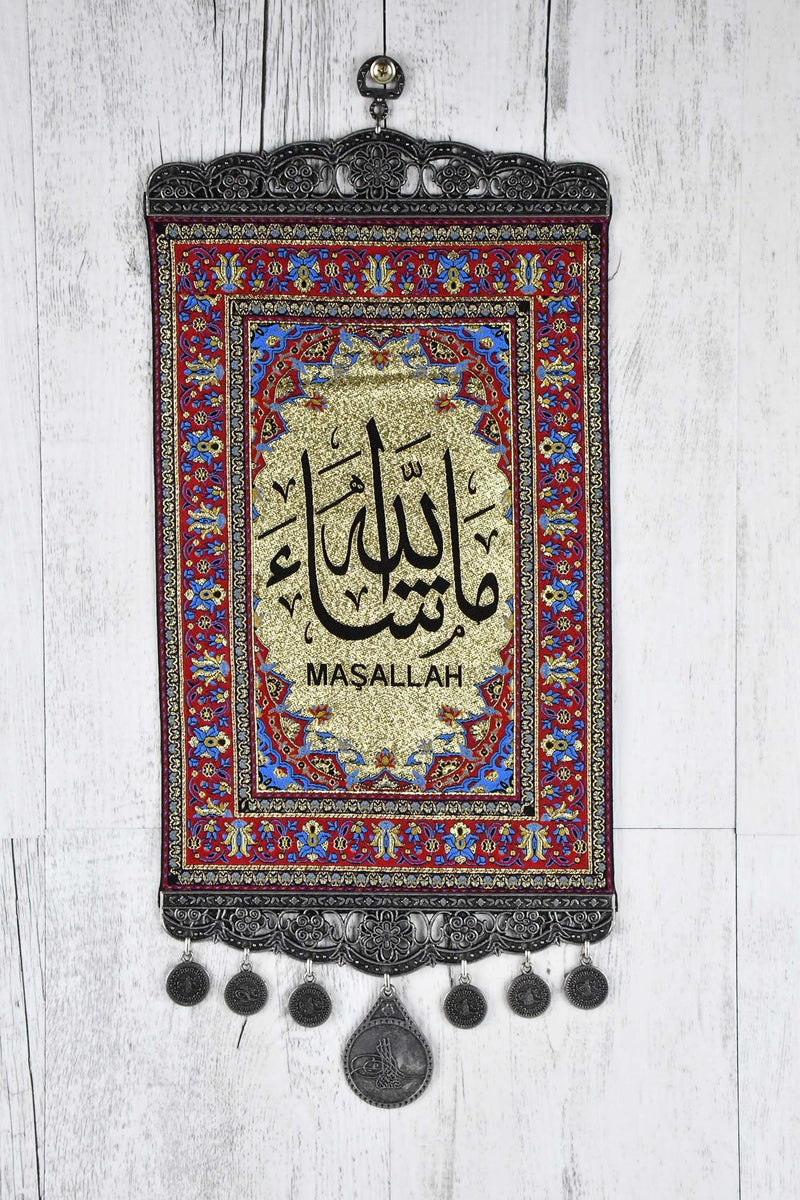 ما شاء الله
MAŞALLAH